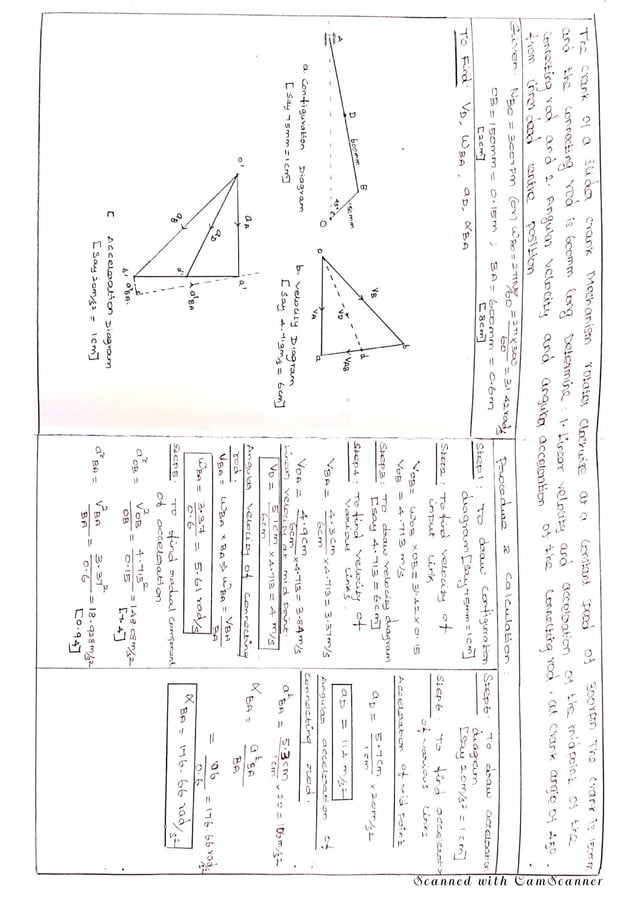 The crank of a slider crank mechanism rotates clockwise at a constant speed of 300rpm. The crank is 150mm
and the connecting rod is 600mm long. Determine: 1. linear velocity and acceleration of the midpoint of the
connecting rod and 2. Angular velocity and angular acceleration of the connecting rod, at crank angle of 45°
from inner dead centre position
Given: NBO = 300rpm (or) ωBO = 2πN/60 = 2π×300/60 = 31.42 rad/s
OB = 150mm = 0.15m ; BA = 600mm = 0.6m
[2cm] [8cm]
To Find: VD, ωBA, aD, αBA
A
D
600mm
B
150mm
45°
O
a. configuration Diagram
[Say 75mm = 1cm]
o
VB
b
VD
d
VA
a
VAB
b. velocity Diagram
[Say 4.713m/s = 6cm]
o'
aA
a'
aD
d'
aB
b'
c. Acceleration Diagram
[Say 20m/s² = 1cm]
Procedure & calculation:
Step1: To draw configuration
diagram [Say 75mm = 1cm]
Step2: To find velocity of
input link
VOB = ωOB × OB = 31.42 × 0.15
VOB = 4.713 m/s
Step3: To draw velocity diagram
[Say 4.713 = 6cm]
Step4: To find velocity of
various links.
VBA = 4.3cm/6cm × 4.713 = 3.37m/s
VOA = 4.9cm/6cm × 4.713 = 3.84m/s
Linear velocity at mid point:
VD = 5.1cm/6cm × 4.713 = 4 m/s
Angular velocity of connecting
rod:
VBA = ωBA × BA ⇒ ωBA = VBA/BA
ωBA = 3.37/0.6 = 5.61 rad/s
Step5: To find radial component
of acceleration
aʳOB = V²OB/OB = 4.713²/0.15 = 148.08m/s²
[7.4]
aʳBA = V²BA/BA = 3.37²/0.6 = 18.928m/s²
[0.94]
Step6: To draw acceleration
diagram
[Say 20m/s² = 1cm]
Step6: To find acceleration
of various links
Acceleration of mid point
aD = 5.7cm/1cm × 20m/s²
aD = 114 m/s²
Angular acceleration of
connecting rod.
aᵗBA = 5.3cm/1cm × 20 = 106m/s²
αBA = aᵗBA/BA
= 106/0.6 = 176.66 rad/s²
αBA = 176.66 rad/s²
Scanned with CamScanner